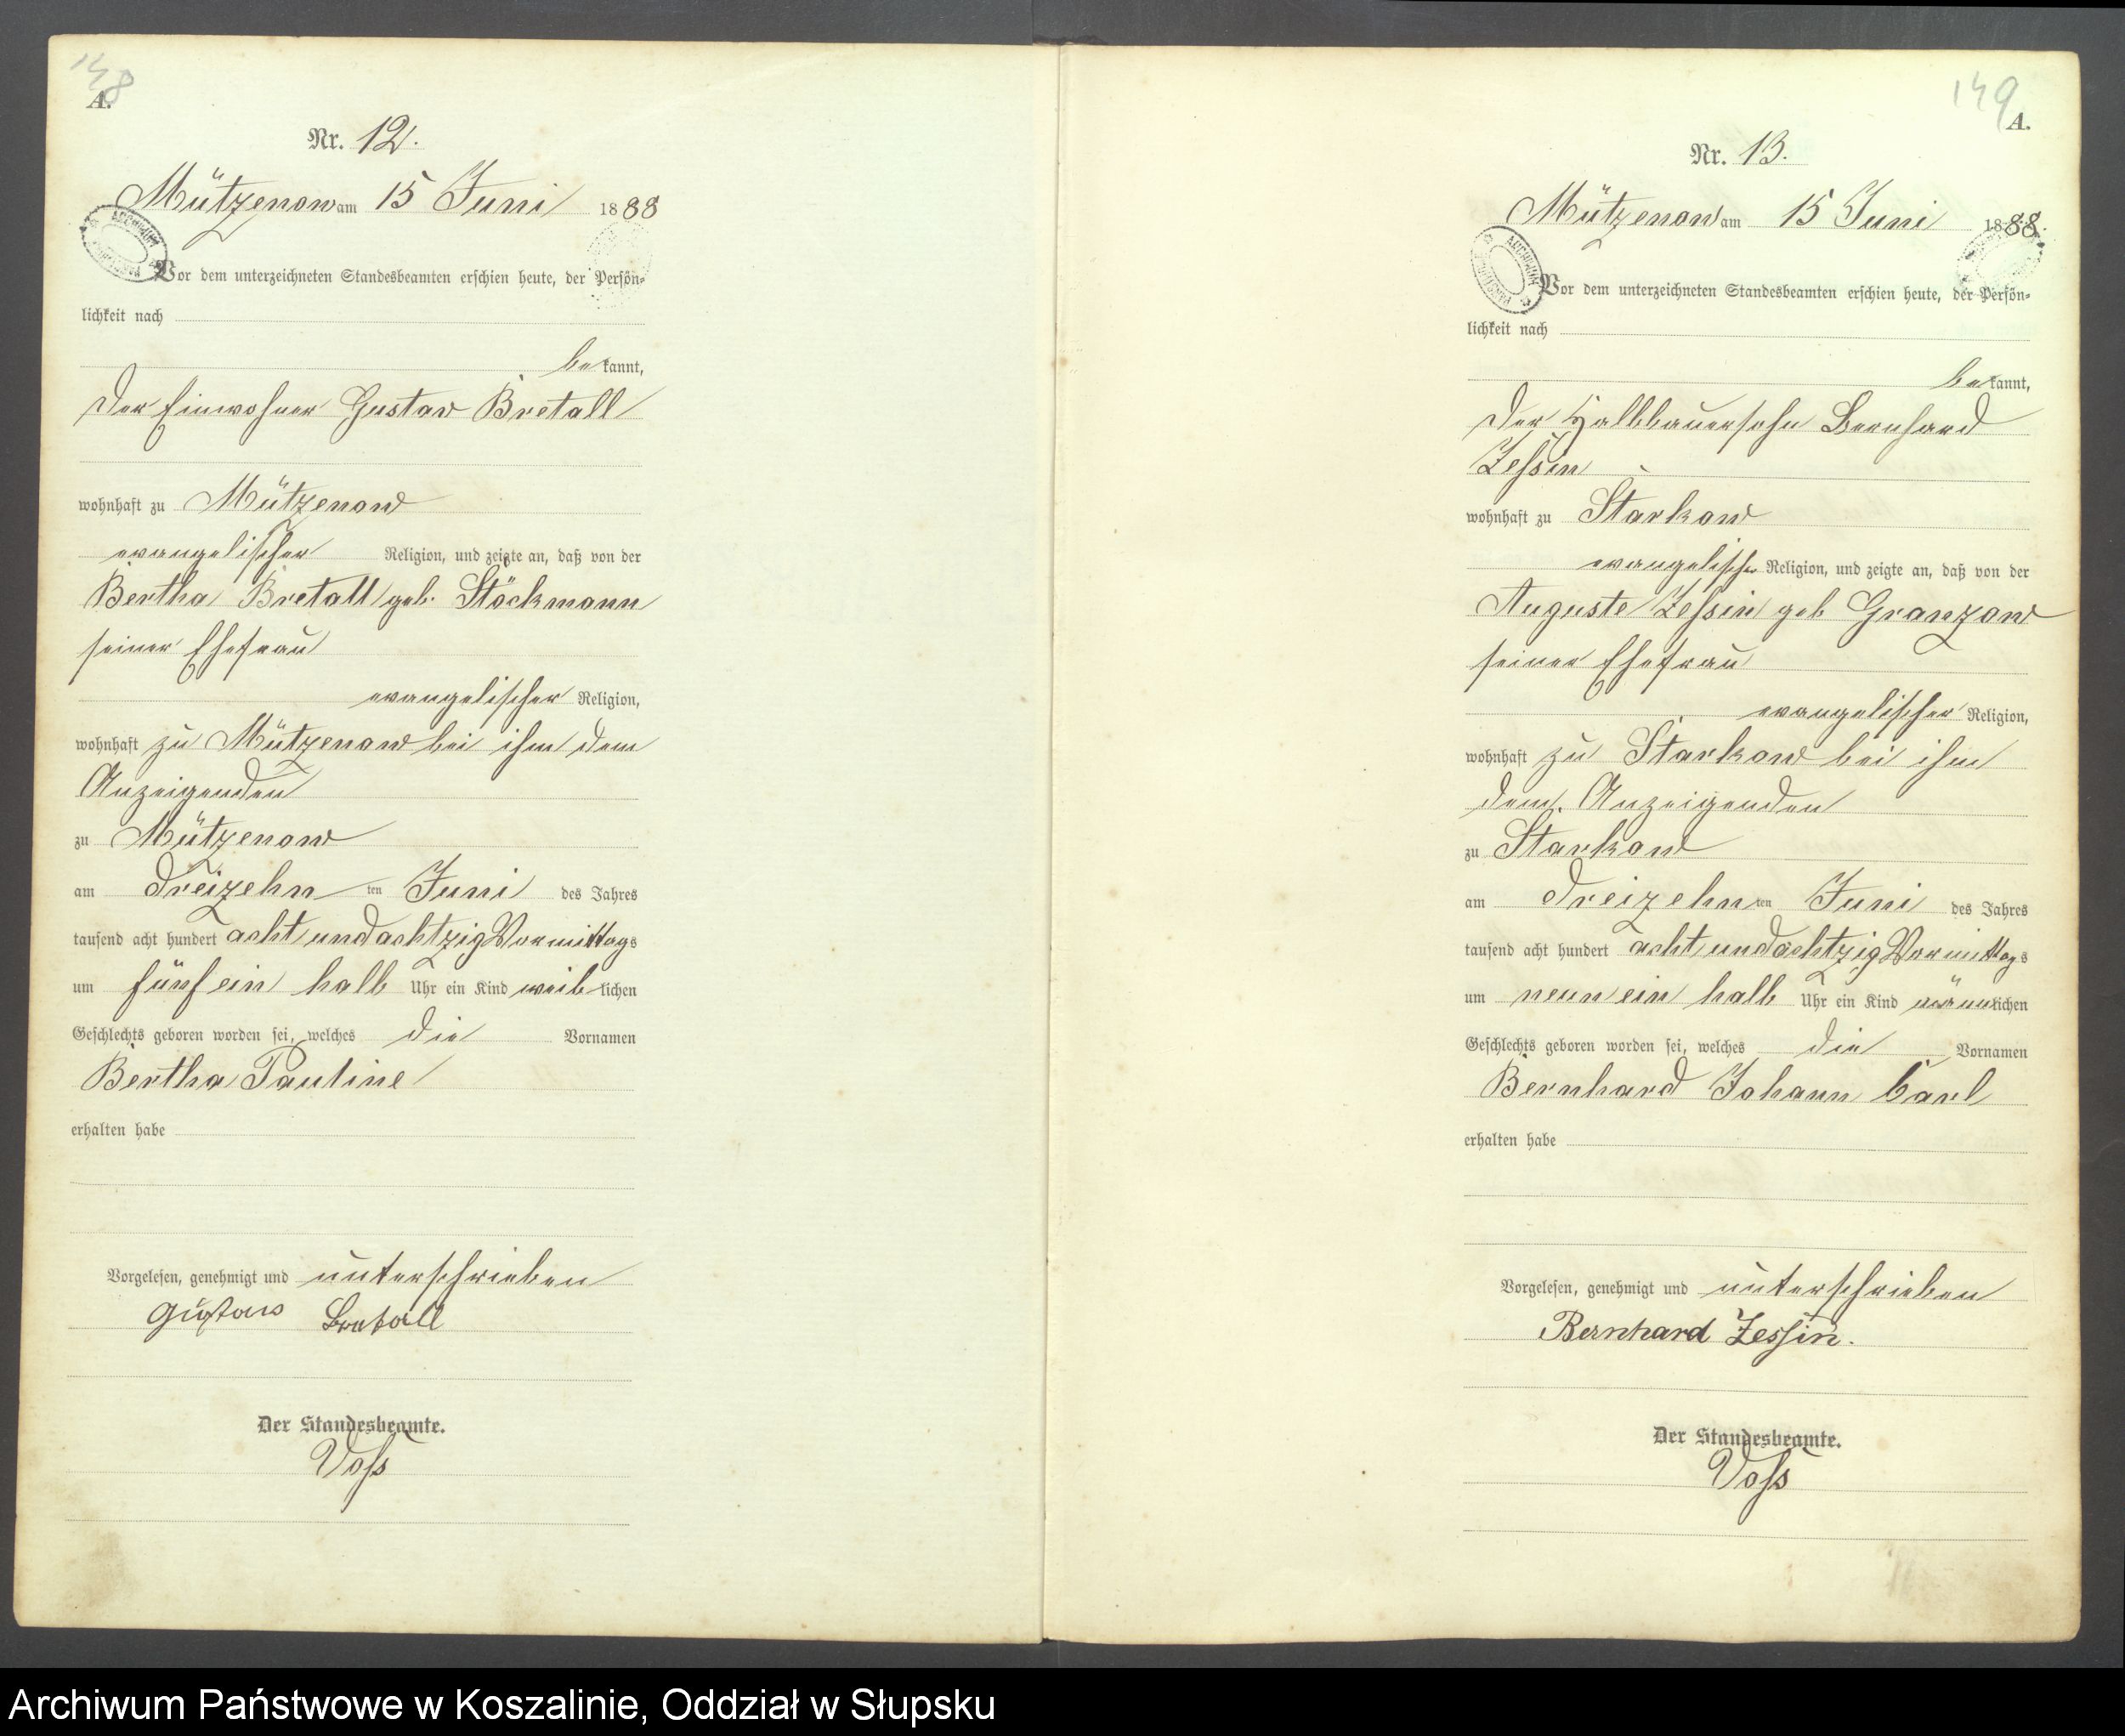 148
A.
Nr. 12.
Mützenow am 15 Juni 1888
Vor dem unterzeichneten Standesbeamten erschien heute, der Persön-
lichkeit nach
bekannt,
der Einwohner Gustav Bretall
wohnhaft zu Mützenow
evangelischer Religion, und zeigte an, daß von der
Bertha Bretall geb. Stöckmann
seiner Ehefrau
evangelischer Religion,
wohnhaft zu Mützenow bei ihm dem
Anzeigenden
zu Mützenow
am dreizehn ten Juni des Jahres
tausend acht hundert acht und achtzig Vormittags
um fünf ein halb Uhr ein Kind weiblichen
Geschlechts geboren worden sei, welches die Vornamen
Bertha Pauline
erhalten habe
Vorgelesen, genehmigt und unterschrieben
Gustav Bretall
Der Standesbeamte.
Voß
149
A.
Nr. 13.
Mützenow am 15 Juni 1888.
Vor dem unterzeichneten Standesbeamten erschien heute, der Persön-
lichkeit nach
bekannt,
der Halbbauersohn Bernhard
Zessin
wohnhaft zu Starkow
evangelischer Religion, und zeigte an, daß von der
Auguste Zessin geb Granzow
seiner Ehefrau
evangelischer Religion,
wohnhaft zu Starkow bei ihm
dem Anzeigenden
zu Starkow
am dreizehn ten Juni des Jahres
tausend acht hundert acht und achtzig Vormittags
um neun ein halb Uhr ein Kind männlichen
Geschlechts geboren worden sei, welches die Vornamen
Bernhard Johann Carl
erhalten habe
Vorgelesen, genehmigt und unterschrieben
Bernhard Zessin.
Der Standesbeamte.
Voß
Archiwum Państwowe w Koszalinie, Oddział w Słupsku